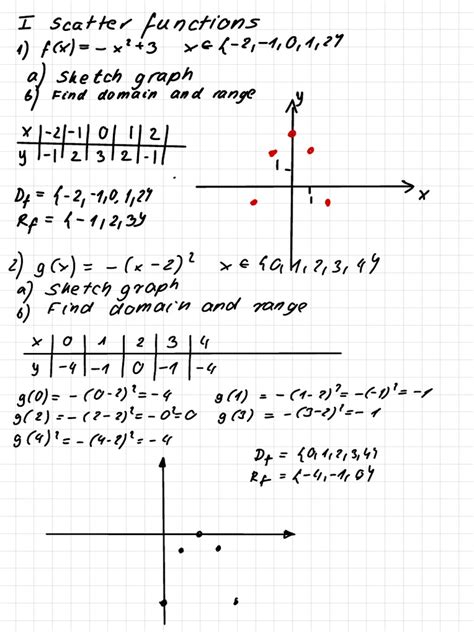 I scatter functions
1) f(x) = - x² + 3 x ∈ {-2, -1, 0, 1, 2}
a) Sketch graph
b) Find domain and range
x | -2 | -1 | 0 | 1 | 2
y | -1 | 2 | 3 | 2 | -1
y
1
1
x
Df = {-2, -1, 0, 1, 2}
Rf = {-1, 2, 3}
2) g(x) = - (x - 2)² x ∈ {0, 1, 2, 3, 4}
a) Sketch graph
b) Find domain and range
x | 0 | 1 | 2 | 3 | 4
y | -4 | -1 | 0 | -1 | -4
g(0) = - (0-2)² = -4 g(1) = -(1-2)² = -(-1)² = -1
g(2) = - (2-2)² = -0² = 0 g(3) = -(3-2)² = -1
g(4)² = -(4-2)² = -4
Df = {0, 1, 2, 3, 4}
Rf = {-4, -1, 0}